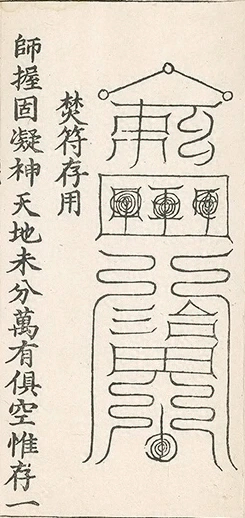 焚符存用
師握固凝神天地未分萬有俱空惟存一